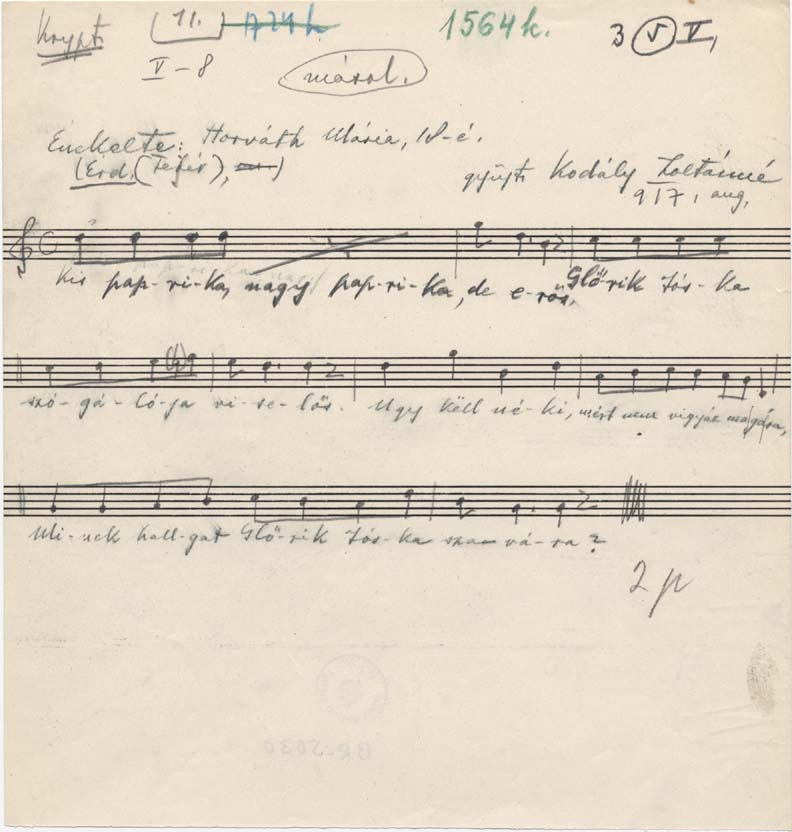 Krypt. (11.) 1724 k. 1564 k. 3 V V,
V-8 másol.
Énekelte: Horváth Mária, 18-é.
(Érd, (Fejér),
gyűjt. Kodály Zoltánné
917, aug,
Kis pap-ri-ka, nagy pap-ri-ka, de e-rős, Glő-rik Jós-ka
szó-gá-ló-ja vi-se-lős. Ugy kell né-ki, mért nem vigyáz magára,
Mi-nek hall-gat Glő-rik Jós-ka sza-vá-ra?
2 p
BR-2030